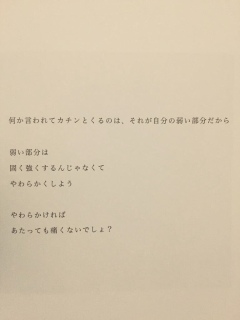 何か言われてカチンとくるのは、それが自分の弱い部分だから
弱い部分は
固く強くするんじゃなくて
やわらかくしよう
やわらかければ
あたっても痛くないでしょ？